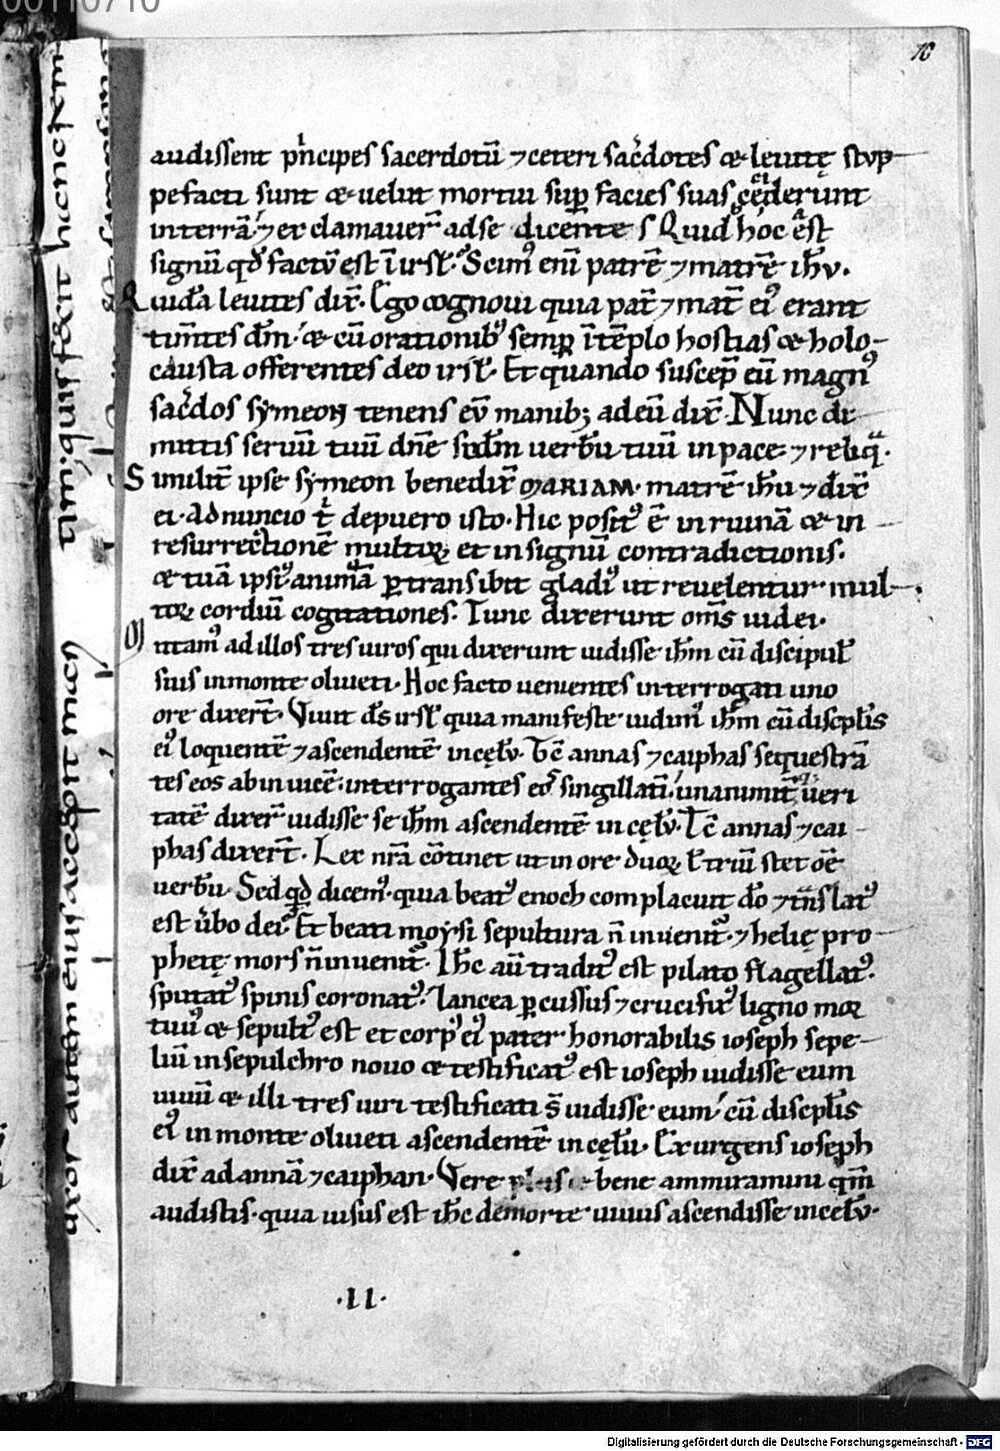 00110710
16
audissent pͥncipes sacerdotū ⁊ceteri sac̄dotes & leuitę stup
pefacti sunt & uelut mortui suꝑ facies suas ceciderunt
in terrā. ⁊ exclamauer̄ ad se dicentes Quid hoc est
signū qd̄ factū est ī isrl̄. Scimꝰ eni patrē ⁊ matrē ihv̄.
Quidā leuites dix̄. Ego cognoui quia pat̄ ⁊ mat̄ eiꝰ erant
tim̄tes dm̄. & cū orationibꝰ semꝑ ī tēplo hostias & holo-
causta offerentes deo isrl̄. Et quando suscep̄ eū magnꝰ
sac̄dos sẏmeon tenens eū manibꝫ ad eū dix̄. Nunc di
mittis seruū tuū dn̄e scd̄m uerbū tuū in pace ⁊ reliqͣ.
Similit̄ ipse sẏmeon benedix̄ MARIAM matrē ihū ⁊ dix̄
ei. Adnuncio tͥ de puero isto. Hic positꝰ ē in ruinā & in
resurrectionē multoꝝ et in signū contradictionis.
& tuā ipsiꝰ animā ꝑtransibit gladiꝰ ut reuelentur mul-
toꝝ cordiū cogitationes. Tunc dixerunt om̄s iudei.
Mittamꝰ ad illos tres uiros qui dixerunt uidisse ihm̄ cū discipul̄
suis in monte oliueti. Hoc facto uenientes interrogati uno
ore dixer̄t. Viuit ds̄ isrl̄ quia manifeste uidimꝰ ihm̄ cū discpl̄is
eiꝰ loquentē ⁊ ascendentē in cęlv̄. Tc̄ annas ⁊ caiphas sequestrā
tes eos ab inuicē. interrogantes eos singillati. unanimit̄ ueri
tatē dixer̄ uidisse se ihm̄ ascendentē in cęlv̄. Tc̄ annas ⁊ cai-
phas dixer̄t. Lex nr̄a cōtinet ut in ore duoꝝ ł triū stet oē
uerbū. Sed qd̄ dicemꝰ. quia beatꝰ enoch complacuit dō ⁊ tn̄slatꝰ
est ūbo dei. Et beati moẏsi sepultura n̄ inuenitꝰ. ⁊ helię pro-
phetę mors n̄ inuenitꝰ. Ihc̄ aū traditꝰ est pilato flagellatꝰ.
sputatꝰ spinis coronatꝰ. lancea ꝑcussus ⁊ crucifixꝰ ligno moꝛ
tuꝰ & sepultꝰ est et corpꝰ eiꝰ pater honorabilis ioseph sepe-
liuī in sepulchro nouo & testificatꝰ est ioseph uidisse eum
uiuū & illi tres uiri testificati s̄ uidisse eum cū discpl̄is
eiꝰ in monte oliueti ascendentē in cęlū. Exurgens ioseph
dix̄ ad annā ⁊ caiphan. Vere bene ammiramini qm̄
audistis. quia uisus est ihc̄ de morte uiuus ascendisse in celv̄.
.II.
Digitalisierung gefördert durch die Deutsche Forschungsgemeinschaft - DFG